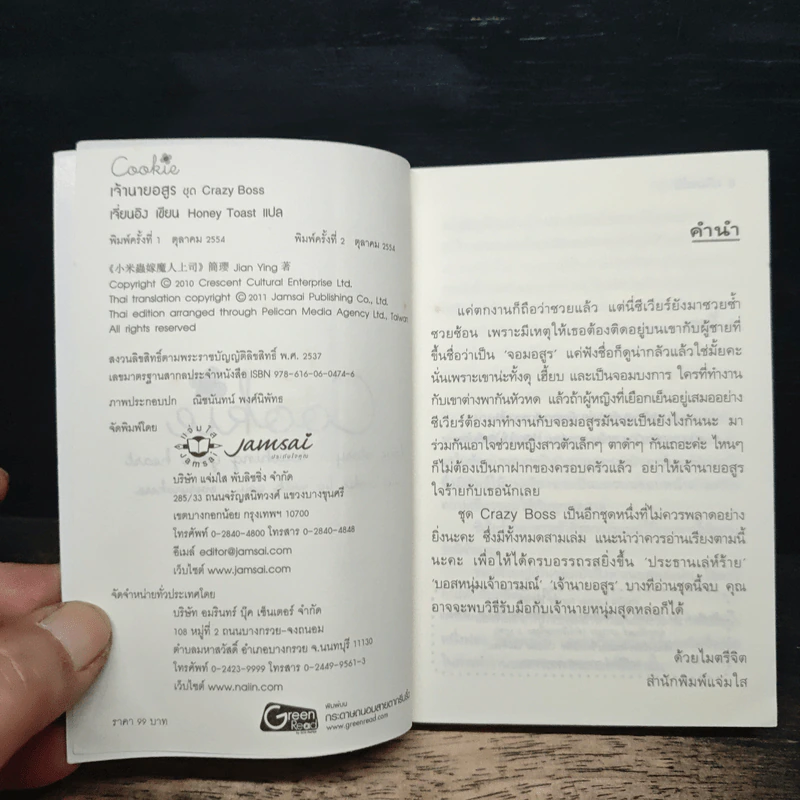 Cookie
เจ้านายอสูร ชุด Crazy Boss
เจี่ยนอิง เขียน Honey Toast แปล
พิมพ์ครั้งที่ 1 ตุลาคม 2554 พิมพ์ครั้งที่ 2 ตุลาคม 2554
《小米蟲嫁魔人上司》簡瓔 Jian Ying 著
Copyright © 2010 Crescent Cultural Enterprise Ltd.
Thai translation copyright © 2011 Jamsai Publishing Co., Ltd.
Thai edition arranged through Pelican Media Agency Ltd., Taiwan
All rights reserved
สงวนลิขสิทธิ์ตามพระราชบัญญัติลิขสิทธิ์ พ.ศ. 2537
เลขมาตรฐานสากลประจำหนังสือ ISBN 978-616-06-0474-6
ภาพประกอบปก ณิชนันทน์ พงศ์นิพัทธ
จัดพิมพ์โดย
แจ่มใส
Jamsai
Jamsai
บริษัท แจ่มใส พับลิชชิ่ง จำกัด
285/33 ถนนจรัญสนิทวงศ์ แขวงบางขุนศรี
เขตบางกอกน้อย กรุงเทพฯ 10700
โทรศัพท์ 0-2840-4800 โทรสาร 0-2840-4848
อีเมล์ editor@jamsai.com
เว็บไซต์ www.jamsai.com
จัดจำหน่ายทั่วประเทศโดย
บริษัท อมรินทร์ บุ๊ค เซ็นเตอร์ จำกัด
108 หมู่ที่ 2 ถนนบางกรวย-จงถนอม
ตำบลมหาสวัสดิ์ อำเภอบางกรวย จ.นนทบุรี 11130
โทรศัพท์ 0-2423-9999 โทรสาร 0-2449-9561-3
เว็บไซต์ www.naiin.com
ราคา 99 บาท
Green Read
พิมพ์บน
กระดาษถนอมสายตากรีนรี้ด
www.greenread.com
คำนำ
แค่ตกงานก็ถือว่าซวยแล้ว แต่นี่ซีเวียร์ยังมาซวยซ้ำ
ซวยซ้อน เพราะมีเหตุให้เธอต้องติดอยู่บนเขากับผู้ชายที่
ขึ้นชื่อว่าเป็น ‘จอมอสูร’ แค่ฟังชื่อก็ดูน่ากลัวแล้วใช่มั้ยคะ
นั่นเพราะเขาน่ะทั้งดุ เฮี้ยบ และเป็นจอมบงการ ใครที่ทำงาน
กับเขาต่างพากันหัวหด แล้วถ้าผู้หญิงที่เยือกเย็นอยู่เสมออย่าง
ซีเวียร์ต้องมาทำงานกับจอมอสูรมันจะเป็นยังไงกันนะ มา
ร่วมกันเอาใจช่วยหญิงสาวตัวเล็กๆ ตาดำๆ กันเถอะค่ะ ไหนๆ
ก็ไม่ต้องเป็นกาฝากของครอบครัวแล้ว อย่าให้เจ้านายอสูร
ใจร้ายกับเธอนักเลย
ชุด Crazy Boss เป็นอีกชุดหนึ่งที่ไม่ควรพลาดอย่าง
ยิ่งนะคะ ซึ่งมีทั้งหมดสามเล่ม แนะนำว่าควรอ่านเรียงตามนี้
นะคะ เพื่อให้ได้ครบอรรถรสยิ่งขึ้น ‘ประธานเล่ห์ร้าย’
‘บอสหนุ่มเจ้าอารมณ์’ ‘เจ้านายอสูร’ บางทีอ่านชุดนี้จบ คุณ
อาจจะพบวิธีรับมือกับเจ้านายหนุ่มสุดหล่อก็ได้
ด้วยไมตรีจิต
สำนักพิมพ์แจ่มใส